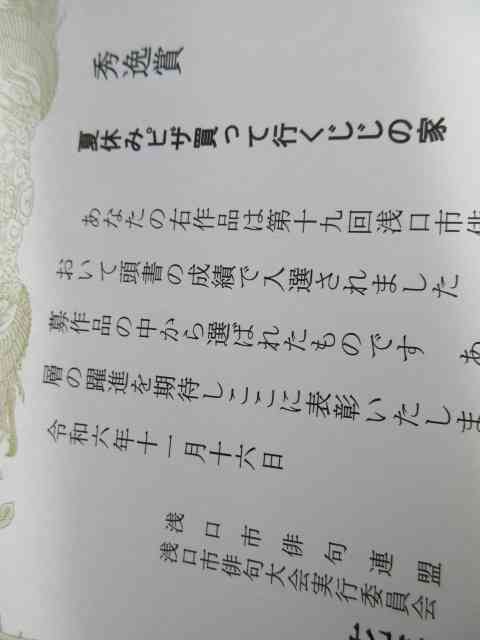 秀逸賞
夏休みピザ買って行くじじの家
あなたの右作品は第十九回浅口市俳
おいて頭書の成績で入選されました
募作品の中から選ばれたものです　あ
層の躍進を期待しここに表彰いたしま
令和六年十一月十六日
浅口市俳句連盟
浅口市俳句大会実行委員会